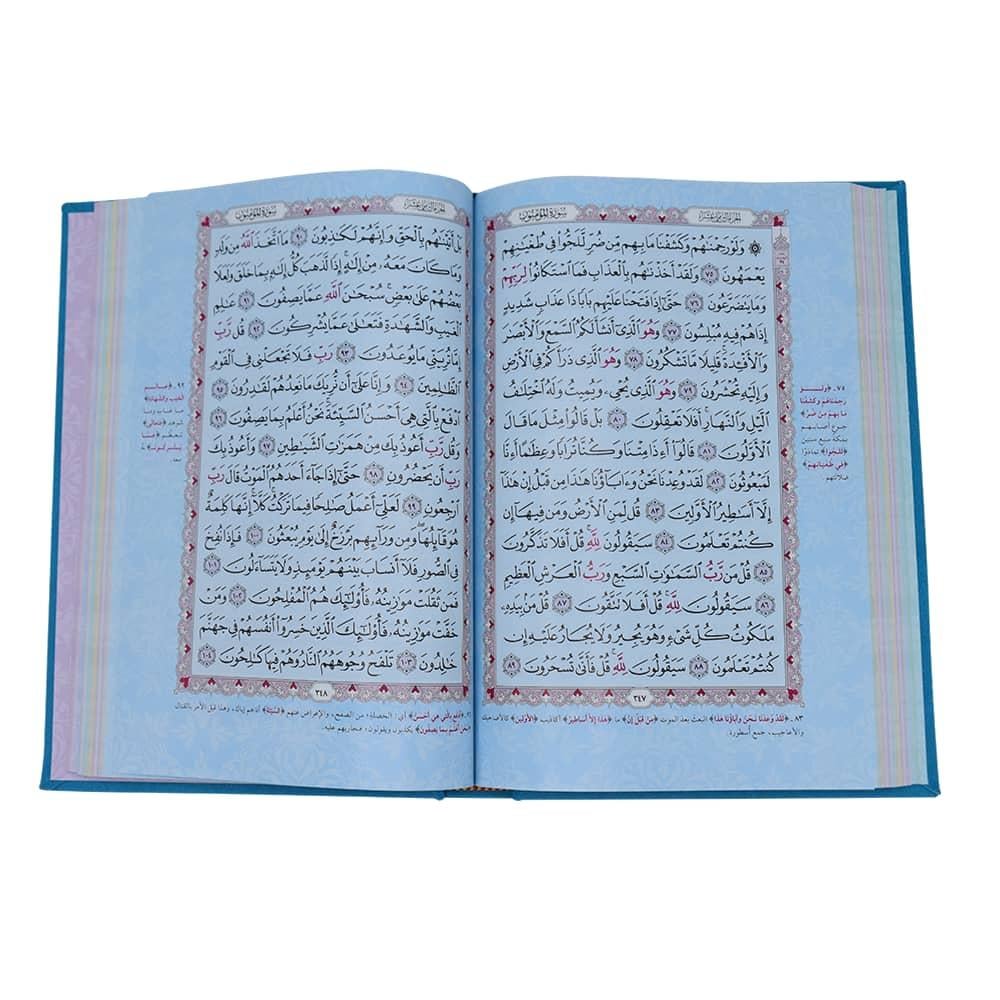 الجزء الثامن عشر
سورة المؤمنون
۞ وَلَوْ رَحِمْنَٰهُمْ وَكَشَفْنَا مَا بِهِم مِّن ضُرٍّ لَّلَجُّوا۟ فِى طُغْيَٰنِهِمْ
يَعْمَهُونَ ٧٥ وَلَقَدْ أَخَذْنَٰهُم بِٱلْعَذَابِ فَمَا ٱسْتَكَانُوا۟ لِرَبِّهِمْ
وَمَا يَتَضَرَّعُونَ ٧٦ حَتَّىٰٓ إِذَا فَتَحْنَا عَلَيْهِم بَابًا ذَا عَذَابٍ شَدِيدٍ
إِذَا هُمْ فِيهِ مُبْلِسُونَ ٧٧ وَهُوَ ٱلَّذِىٓ أَنشَأَ لَكُمُ ٱلسَّمْعَ وَٱلْأَبْصَٰرَ
وَٱلْأَفْـِٔدَةَ ۚ قَلِيلًا مَّا تَشْكُرُونَ ٧٨ وَهُوَ ٱلَّذِى ذَرَأَكُمْ فِى ٱلْأَرْضِ
وَإِلَيْهِ تُحْشَرُونَ ٧٩ وَهُوَ ٱلَّذِى يُحْىِۦ وَيُمِيتُ وَلَهُ ٱخْتِلَٰفُ
ٱلَّيْلِ وَٱلنَّهَارِ ۚ أَفَلَا تَعْقِلُونَ ٨٠ بَلْ قَالُوا۟ مِثْلَ مَا قَالَ
ٱلْأَوَّلُونَ ٨١ قَالُوٓا۟ أَءِذَا مِتْنَا وَكُنَّا تُرَابًا وَعِظَٰمًا أَءِنَّا
لَمَبْعُوثُونَ ٨٢ لَقَدْ وُعِدْنَا نَحْنُ وَءَابَآؤُنَا هَٰذَا مِن قَبْلُ إِنْ هَٰذَآ
إِلَّآ أَسَٰطِيرُ ٱلْأَوَّلِينَ ٨٣ قُل لِّمَنِ ٱلْأَرْضُ وَمَن فِيهَآ إِن
كُنتُمْ تَعْلَمُونَ ٨٤ سَيَقُولُونَ لِلَّهِ ۚ قُلْ أَفَلَا تَذَكَّرُونَ
٨٥ قُلْ مَن رَّبُّ ٱلسَّمَٰوَٰتِ ٱلسَّبْعِ وَرَبُّ ٱلْعَرْشِ ٱلْعَظِيمِ
٨٦ سَيَقُولُونَ لِلَّهِ ۚ قُلْ أَفَلَا تَتَّقُونَ ٨٧ قُلْ مَنۢ بِيَدِهِۦ
مَلَكُوتُ كُلِّ شَىْءٍ وَهُوَ يُجِيرُ وَلَا يُجَارُ عَلَيْهِ إِن
كُنتُمْ تَعْلَمُونَ ٨٨ سَيَقُولُونَ لِلَّهِ ۚ قُلْ فَأَنَّىٰ تُسْحَرُونَ ٨٩
٣٤٧
٧٥. ﴿ولو
رحمناهم وكشفنا
ما بهم من ضر﴾
جوع أصابهم
بمكة سبع سنين
﴿للجوا﴾ تمادوا
﴿في طغيانهم﴾
ضلالتهم
٨٣. ﴿لقد وعدنا نحن وآباؤنا هذا﴾ البعث بعد الموت ﴿من قبل إن﴾ ما ﴿هذا إلا أساطير﴾ أكاذيب ﴿الأولين﴾ كالأضاحيك
والأعاجيب، جمع أسطورة.
الجزء الثامن عشر
سورة المؤمنون
بَلْ أَتَيْنَٰهُم بِٱلْحَقِّ وَإِنَّهُمْ لَكَٰذِبُونَ ٩٠ مَا ٱتَّخَذَ ٱللَّهُ مِن وَلَدٍ
وَمَا كَانَ مَعَهُۥ مِنْ إِلَٰهٍ ۚ إِذًا لَّذَهَبَ كُلُّ إِلَٰهٍۭ بِمَا خَلَقَ وَلَعَلَا
بَعْضُهُمْ عَلَىٰ بَعْضٍ ۚ سُبْحَٰنَ ٱللَّهِ عَمَّا يَصِفُونَ ٩١ عَٰلِمِ
ٱلْغَيْبِ وَٱلشَّهَٰدَةِ فَتَعَٰلَىٰ عَمَّا يُشْرِكُونَ ٩٢ قُل رَّبِّ
إِمَّا تُرِيَنِّى مَا يُوعَدُونَ ٩٣ رَبِّ فَلَا تَجْعَلْنِى فِى ٱلْقَوْمِ
ٱلظَّٰلِمِينَ ٩٤ وَإِنَّا عَلَىٰٓ أَن نُّرِيَكَ مَا نَعِدُهُمْ لَقَٰدِرُونَ ٩٥
ٱدْفَعْ بِٱلَّتِى هِىَ أَحْسَنُ ٱلسَّيِّئَةَ ۚ نَحْنُ أَعْلَمُ بِمَا يَصِفُونَ ٩٦
وَقُل رَّبِّ أَعُوذُ بِكَ مِنْ هَمَزَٰتِ ٱلشَّيَٰطِينِ ٩٧ وَأَعُوذُ بِكَ
رَبِّ أَن يَحْضُرُونِ ٩٨ حَتَّىٰٓ إِذَا جَآءَ أَحَدَهُمُ ٱلْمَوْتُ قَالَ رَبِّ
ٱرْجِعُونِ ٩٩ لَعَلِّىٓ أَعْمَلُ صَٰلِحًا فِيمَا تَرَكْتُ ۚ كَلَّآ ۚ إِنَّهَا كَلِمَةٌ
هُوَ قَآئِلُهَا ۖ وَمِن وَرَآئِهِم بَرْزَخٌ إِلَىٰ يَوْمِ يُبْعَثُونَ ١٠٠ فَإِذَا نُفِخَ
فِى ٱلصُّورِ فَلَآ أَنسَابَ بَيْنَهُمْ يَوْمَئِذٍ وَلَا يَتَسَآءَلُونَ ١٠١
فَمَن ثَقُلَتْ مَوَٰزِينُهُۥ فَأُو۟لَٰٓئِكَ هُمُ ٱلْمُفْلِحُونَ ١٠٢ وَمَنْ
خَفَّتْ مَوَٰزِينُهُۥ فَأُو۟لَٰٓئِكَ ٱلَّذِينَ خَسِرُوٓا۟ أَنفُسَهُمْ فِى جَهَنَّمَ
خَٰلِدُونَ ١٠٣ تَلْفَحُ وُجُوهَهُمُ ٱلنَّارُ وَهُمْ فِيهَا كَٰلِحُونَ ١٠٤
٣٤٨
٩٢. ﴿عالم
الغيب والشهادة﴾
ما غاب وما
شوهد ﴿فتعالى﴾
تعظم ﴿عما
يشركون﴾
معه.
﴿ادفع بالتي هي أحسن﴾ أي: الخصلة من الصفح، والإعراض عنهم ﴿السيئة﴾ أذاهم إياك، وهذا قبل الأمر بالقتال
﴿نحن أعلم بما يصفون﴾ يكذبون ويقولون، فنجازيهم عليه.